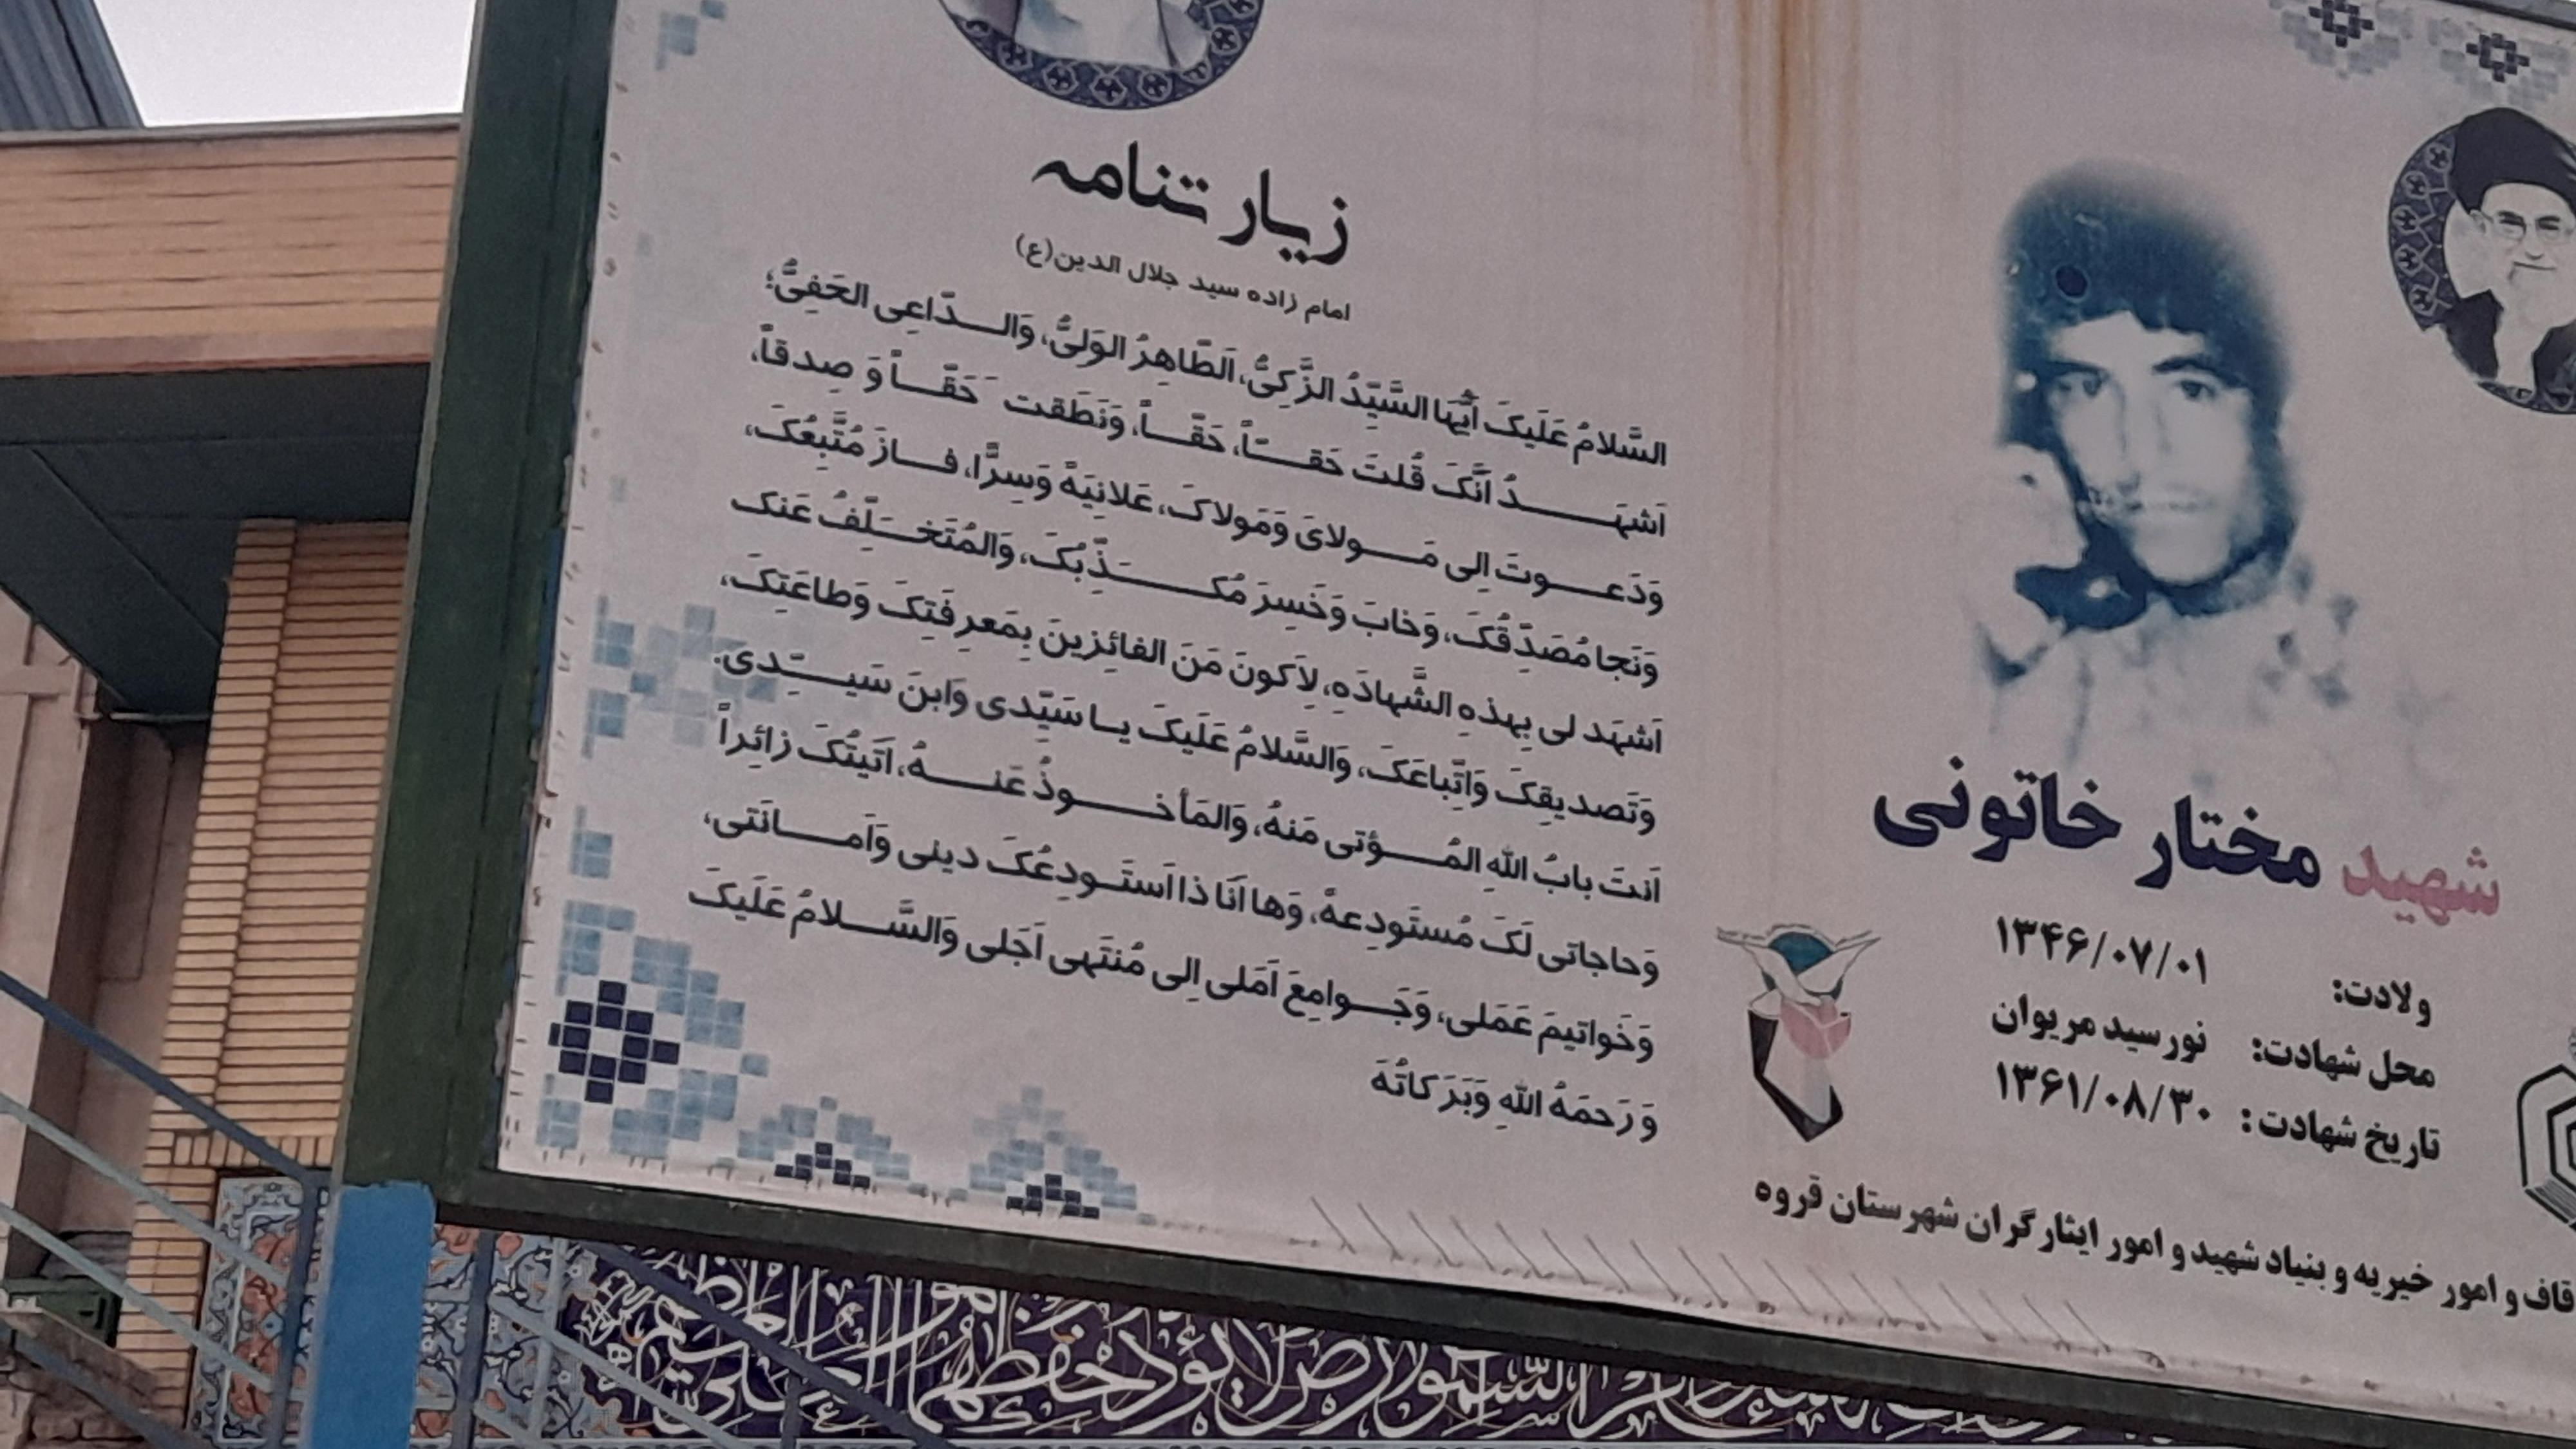 زیارتنامه
امام زاده سید جلال الدین(ع)
السَّلامُ عَلَیکَ اَیُّهَا السَّیِّدُ الزَّکِیُّ، الطّاهِرُ الوَلِیُّ، وَالــدّاعِی الحَفِیُّ؛
اَشهَــــدُ اَنَّکَ قُلتَ حَقــّاً، حَقّــاً، وَنَطَقت َ حَقّــاً وَ صِدقاً،
وَدَعـــوتَ اِلی مَـــولایَ وَمَولاکَ، عَلانِیَهً وَسِرًّا، فـــازَ مُتَّبِعُکَ،
وَنَجا مُصَدِّقُکَ، وَخابَ وَخَسِرَ مُکــــَذِّبُکَ، وَالمُتَخــَلِّفُ عَنکَ
اَشهَد لی بِهذِهِ الشَّهادَهِ، لِاَکونَ مَنَ الفائِزینَ بِمَعرِفَتِکَ وَطاعَتِکَ،
وَتَصدیقِکَ وَاتِّباعَکَ، وَالسَّلامُ عَلَیکَ یــا سَیِّدی وَابنَ سَیــِّدی.
اَنتَ بابُ اللهِ المُـــؤتی مَنهُ، وَالمَأخـــوذُ عَنـــهُ، اَتَیتُکَ زائِراً
وَحاجاتی لَکَ مُستَودِعهً، وَها اَنَا ذا اَستَــودِعُکَ دینی وَاَمـــانَتی،
وَخَواتیمَ عَمَلی، وَجَـــوامِعَ اَمَلی اِلی مُنتَهی اَجَلی وَالسَّـــلامُ عَلَیکَ
وَ رَحمَهُ اللهِ وَبَرَکاتُهَ
شهید مختار خاتونی
ولادت: ۱۳۴۶/۰۷/۰۱
محل شهادت: نورسید مریوان
تاریخ شهادت: ۱۳۶۱/۰۸/۳۰
و امور خیریه و بنیاد شهید و امور ایثارگران شهرستان قروه
السموات والارض ولا یؤده حفظهما وهو العلی العظیم